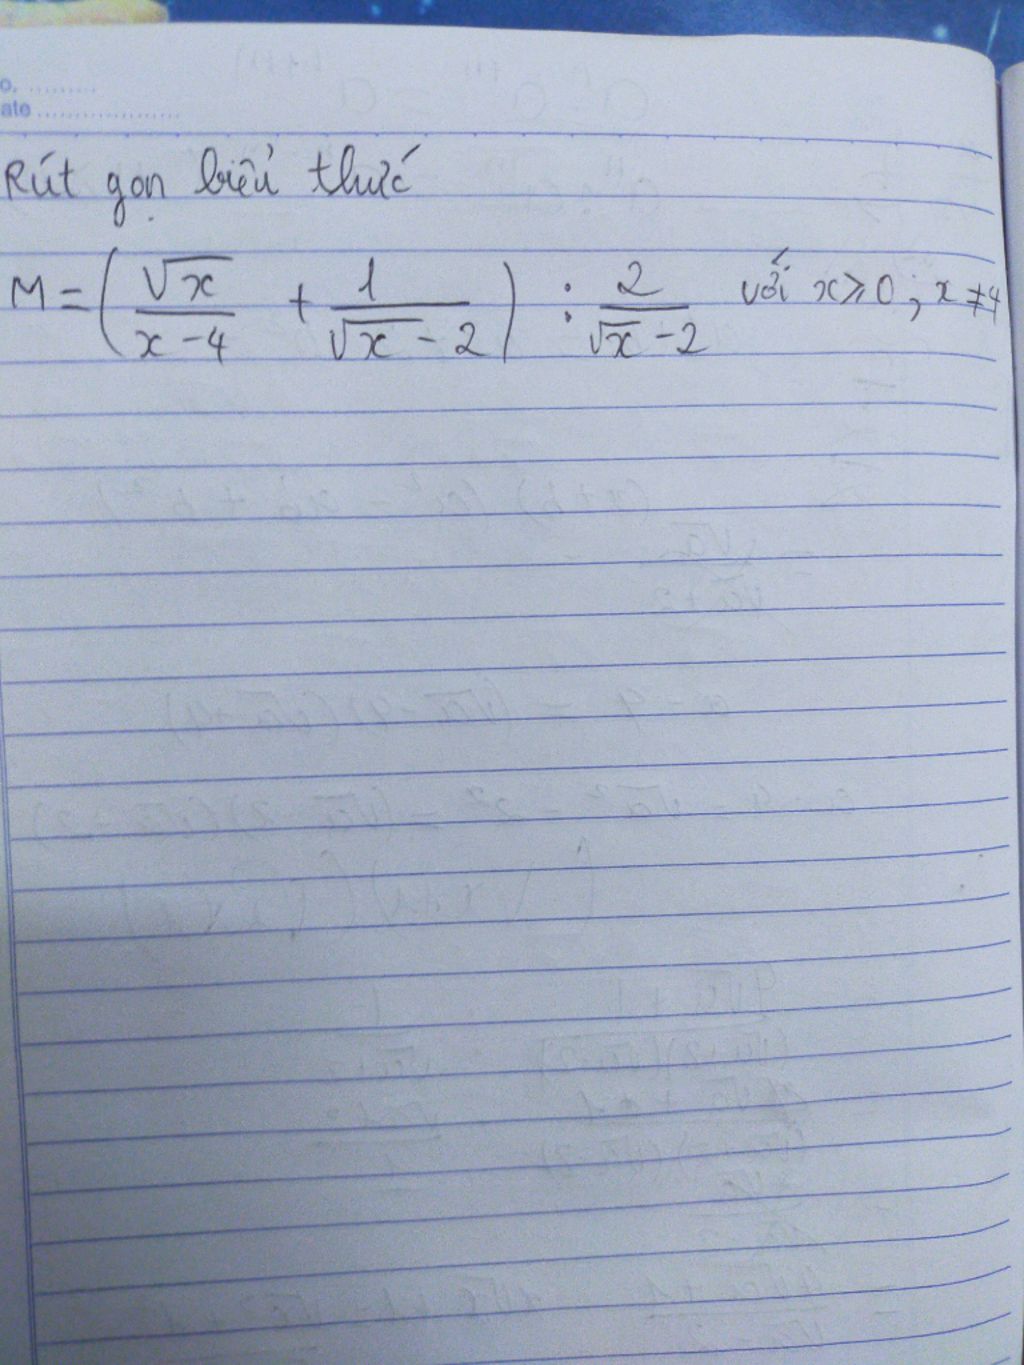 o. ..........
ate ....................
Rút gọn biểu thức
M = ( √x / (x - 4) + 1 / (√x - 2) ) : 2 / (√x - 2) với x ⩾ 0 ; x ≠ 4